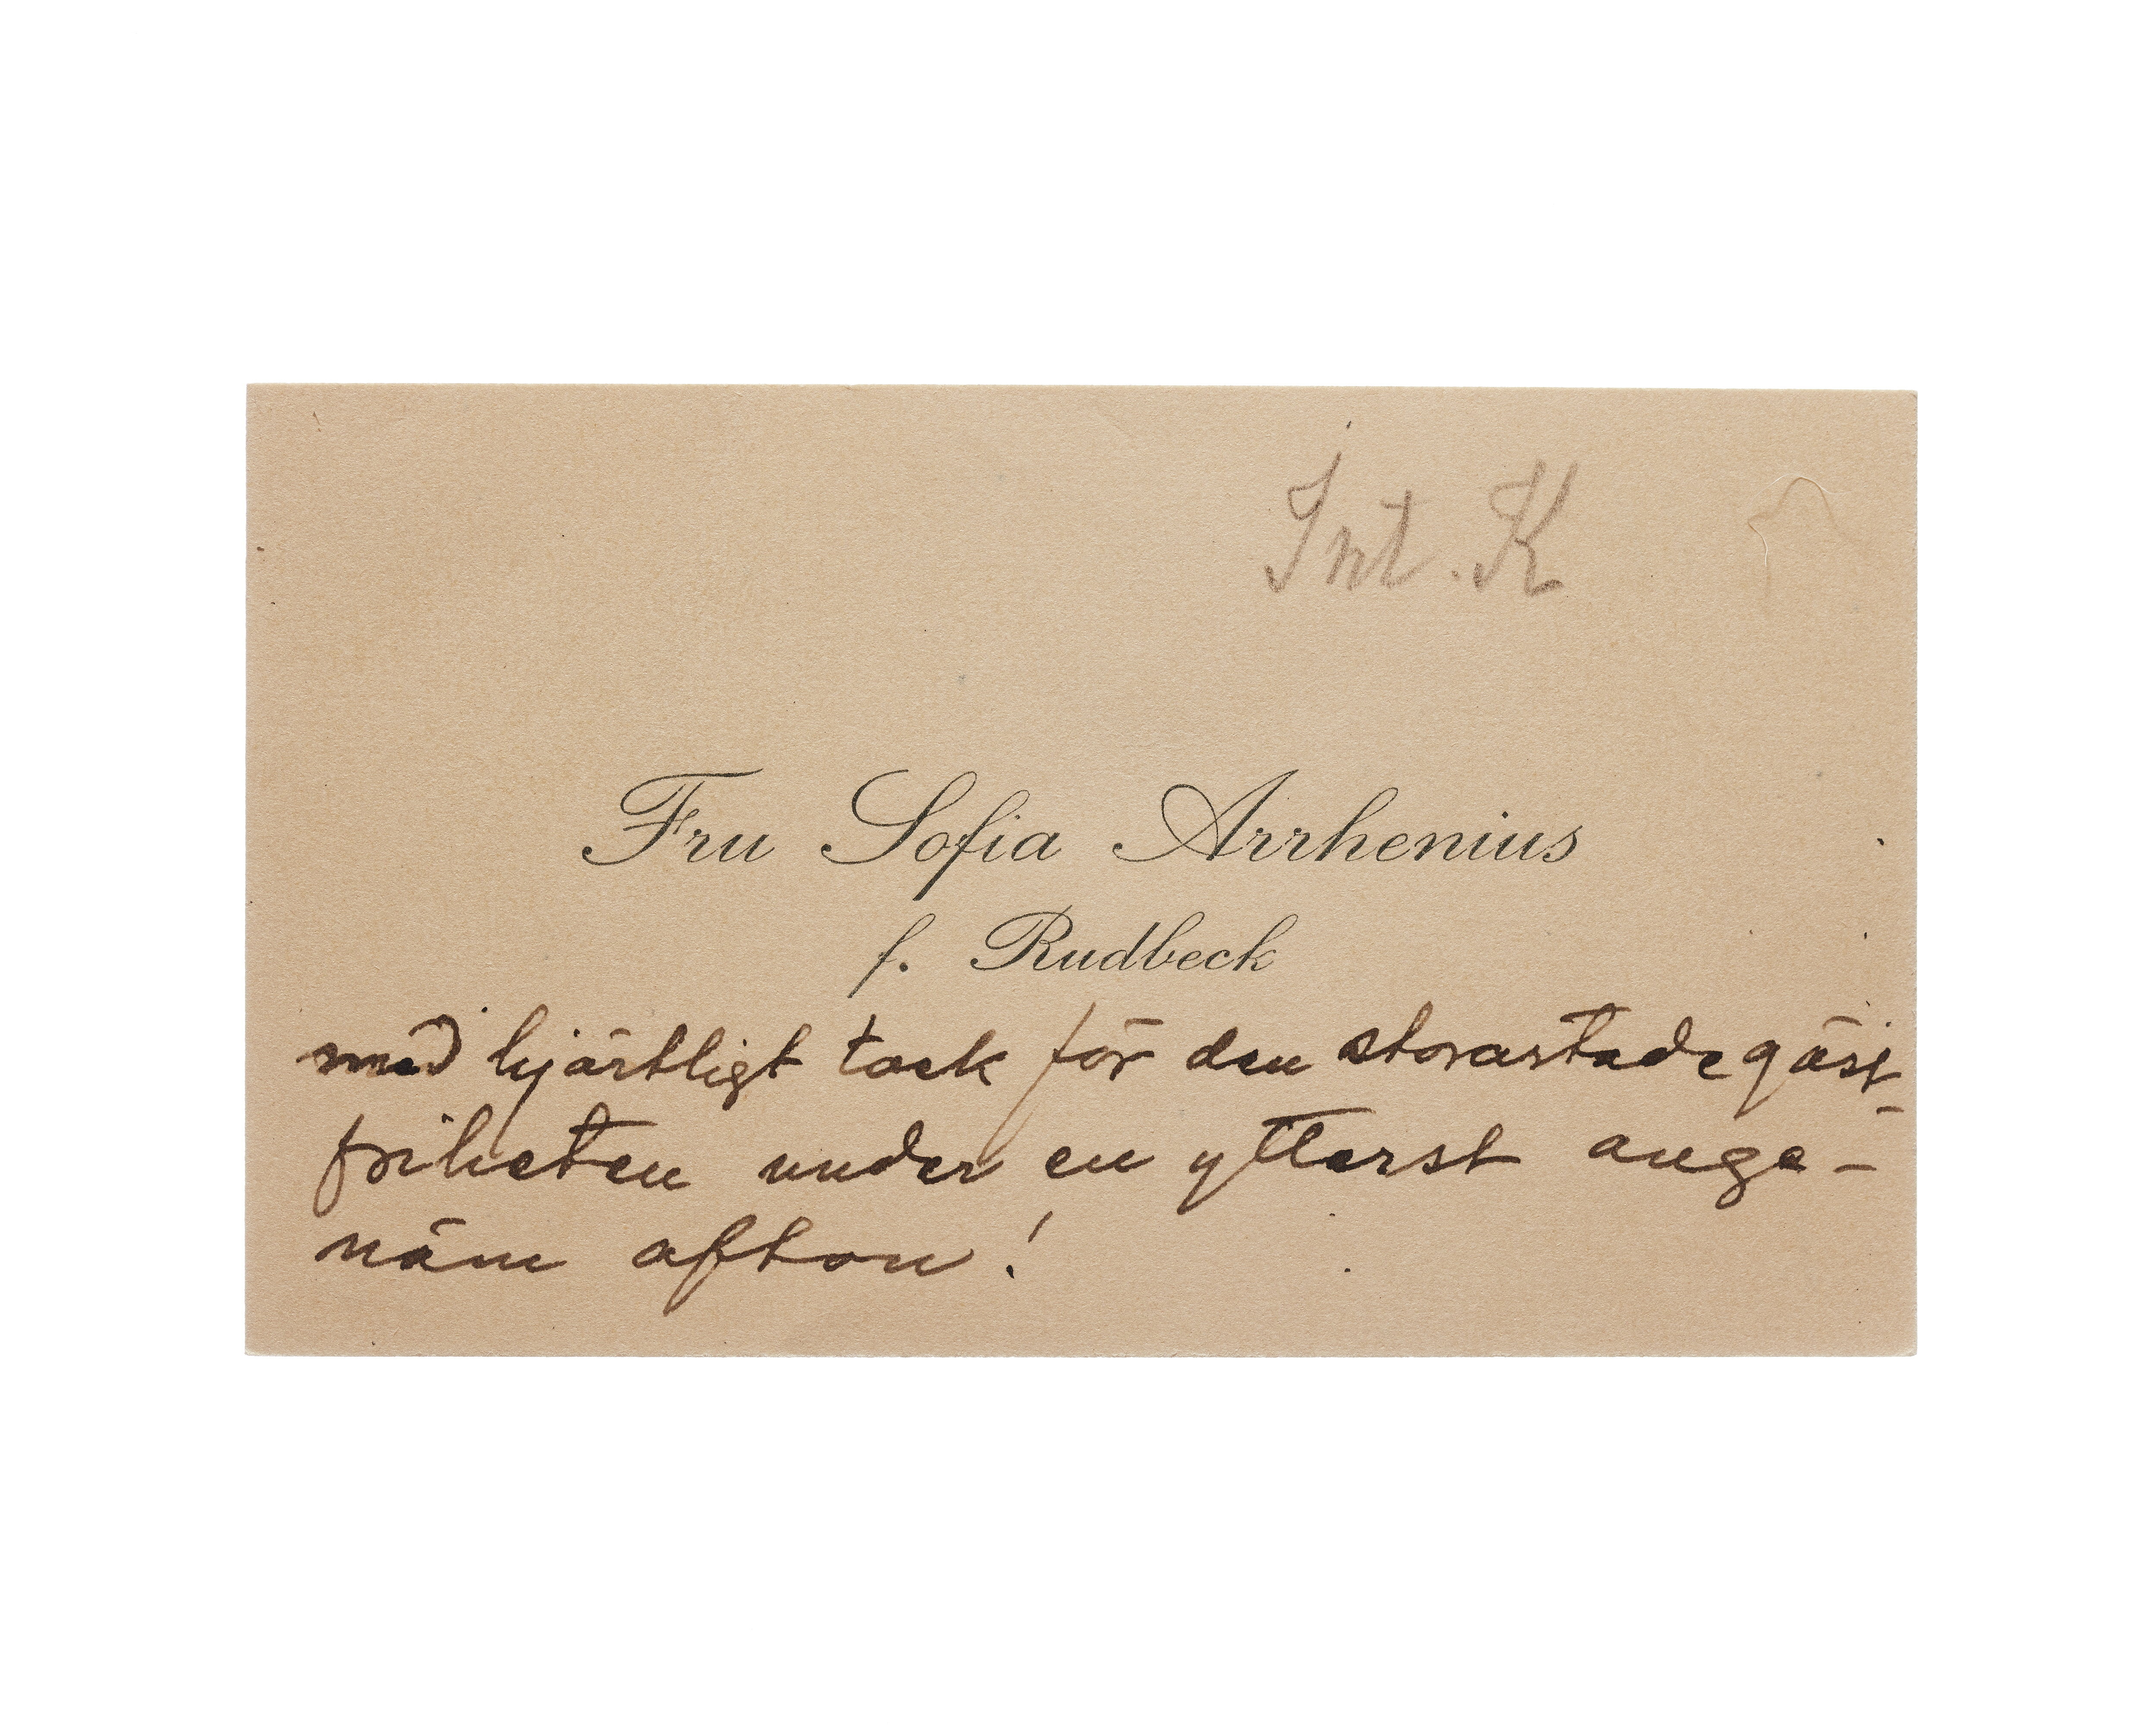 Int. K
Fru Sofia Arrhenius
f. Rudbeck
med hjärtligt tack för den storartade gäst-
friheten under en ytterst ange-
näm afton!